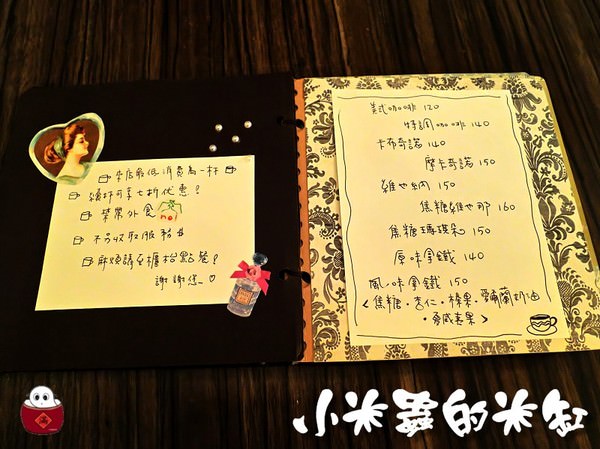 本店最低消費為一杯
續杯可享七折優惠?
禁帶外食 no!
不另收取服務$
麻煩請至櫃枱點餐?
謝謝您~♡
美式咖啡 120
特調咖啡 140
卡布奇諾 140
摩卡奇諾 150
維也納 150
焦糖維也那 160
焦糖瑪琪朵 150
原味拿鐵 140
風味拿鐵 150
<焦糖·杏仁·榛果·愛爾蘭奶油
·夏威夷果>
小米蟲的米缸